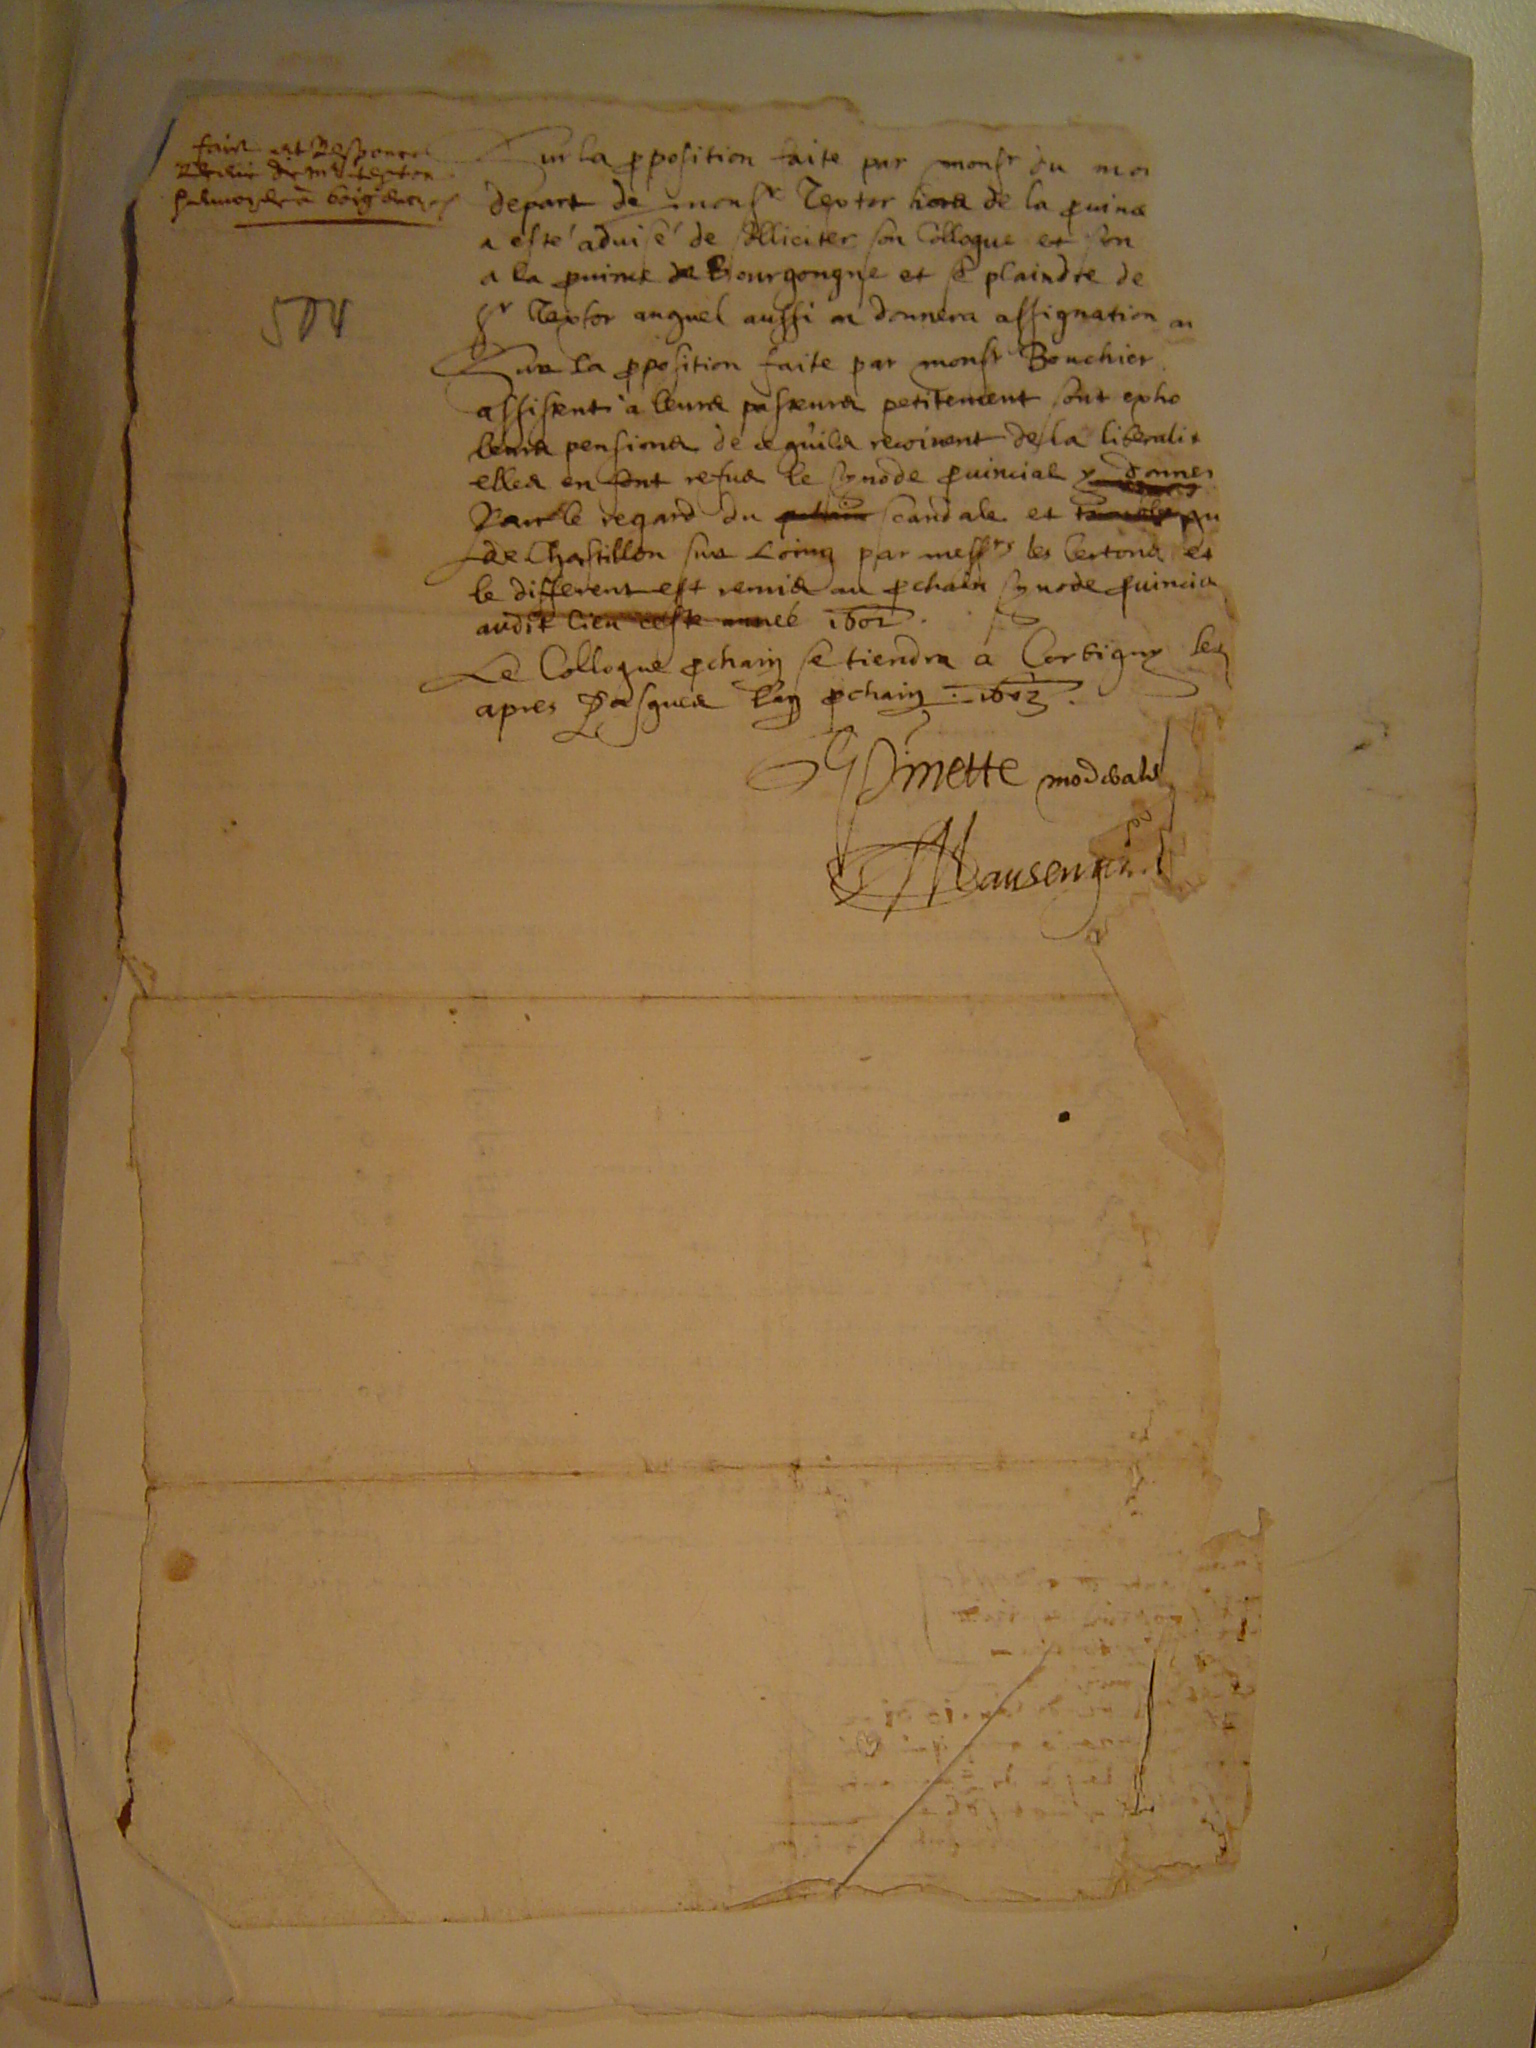 faict et Response
504
Sur la pposition faite par monsr du mo
depart de monsr Textor hors de la puince
a esté aduisé de solliciter son Colloque et son
a la puince de Bourgongne et se plaindre de
sr Textor auquel aussi on donnera assignation au
Sur la pposition faite par monsr Bouchier
assistent a leurs pasteurs petitement sont exho
leurs pensions de ce quils recoivent de la liberalit
elles en font refus le synode puincial y donner
Pour le regard du scandale et
de Chastillon sur Loing par messrs les et
le different est remis au pchain synode puincia
audit lieu ceste année 1602.
Le Colloque pchain se tiendra a Corbigny les
apres Pasques l'an pchain . 1603.
Pinette